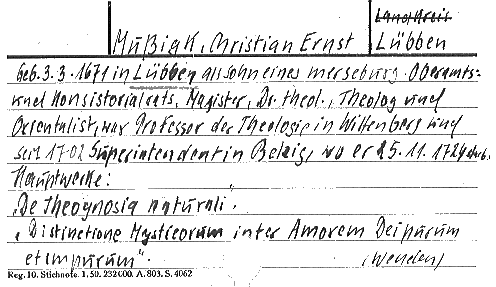 Landkreis
Mußigk, Christian Ernst Lübben
Geb. 3.3.1671 in Lübben als Sohn eines merseburg. Oberamts-
und Konsistorialrats, Magister, Dr. theol., Theolog und
Orientalist, war Professor der Theologie in Wittenberg und
seit 1702 Superintendent in Belzig, wo er 25.11.1724 starb.
Hauptwerke:
„De Theognosia naturali".
„Distinctione Mysticorum inter Amorem Dei purum
et impurum". (Wenden)
Reg. 10. Stichnote. 1, 50. 232000. A. 803. S. 4062